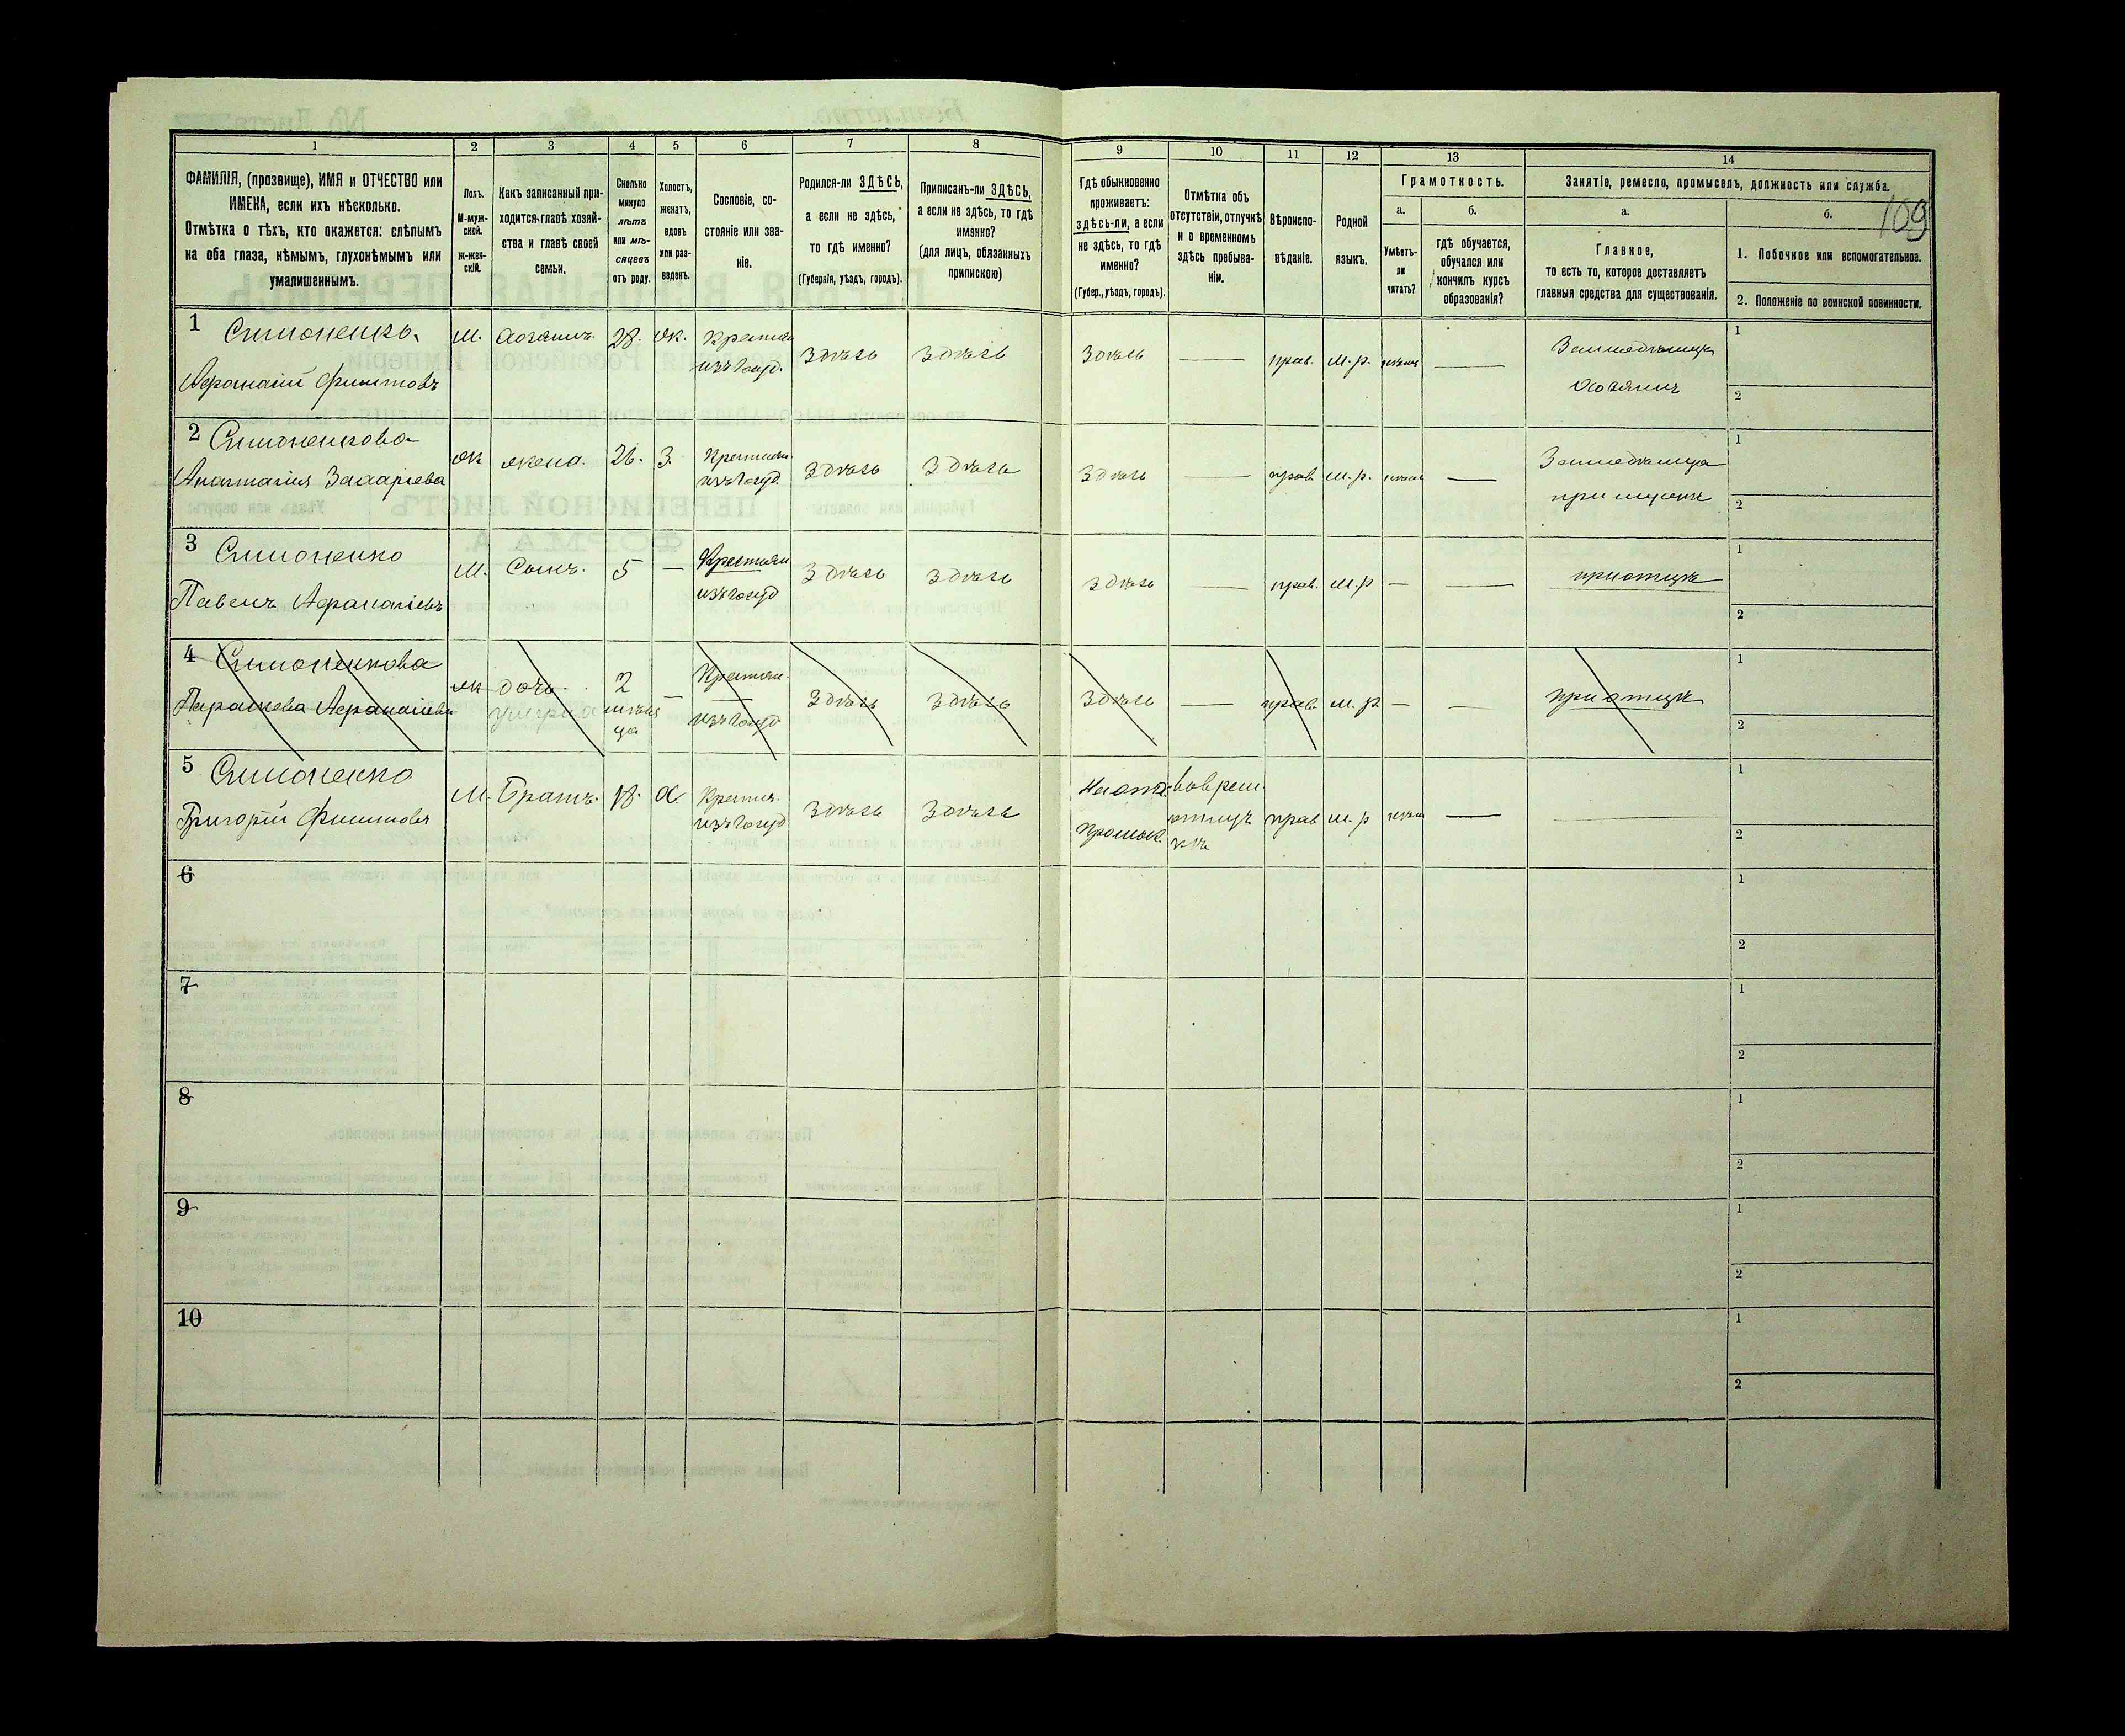 109
1
2
3
4
5
6
7
8
9
10
11
12
13
14
ФАМИЛІЯ, (прозвище), ИМЯ и ОТЧЕСТВО или
ИМЕНА, если ихъ нѣсколько.
Отмѣтка о тѣхъ, кто окажется: слѣпымъ
на оба глаза, нѣмымъ, глухонѣмымъ или
умалишеннымъ.
Полъ.
М-муж-
ской.
ж-жен-
скій.
Какъ записанный при-
ходится главѣ хозяй-
ства и главѣ своей
семьи.
Сколько
минуло
лѣтъ
или мѣ-
сяцевъ
отъ роду.
Холостъ,
женатъ,
вдовъ
или раз-
веденъ.
Сословіе, со-
стояніе или зва-
ніе.
Родился-ли ЗДѢСЬ,
а если не здѣсь,
то гдѣ именно?
(Губернія, уѣздъ, городъ).
Приписанъ-ли ЗДѢСЬ,
а если не здѣсь, то гдѣ
именно?
(для лицъ, обязанныхъ
припискою)
Гдѣ обыкновенно
проживаетъ:
здѣсь-ли, а если
не здѣсь, то гдѣ
именно?
(Губер., уѣздъ, городъ).
Отмѣтка объ
отсутствіи, отлучкѣ
и о временномъ
здѣсь пребыва-
ніи.
Вѣроиспо-
вѣданіе.
Родной
языкъ.
Грамотность.
а.
Умѣетъ-
ли
читать?
б.
гдѣ обучается,
обучался или
кончилъ курсъ
образованія?
Занятіе, ремесло, промыселъ, должность или служба.
а.
Главное,
то есть то, которое доставляетъ
главныя средства для существованія.
б.
1. Побочное или вспомогательное.
2. Положеніе по воинской повинности.
1 Симоненко.
Афанасій Филитовъ
м. хозяинъ. 28. ж. Крестьян
изъ госуд. здѣсь здѣсь здѣсь — прав. м.р. —
Земледѣлецъ
Хозяинъ
1
2
2 Симоненкова
Анастасия Захаріева
ж жена. 26. З. Крестьян.
изъ госуд. здѣсь здѣсь здѣсь — прав. м.р. —
Земледѣлица
при мужѣ
1
2
3 Симоненко
Павелъ Афанасіевъ
м. Сынъ. 5 — Крестьян
изъ госуд здѣсь здѣсь здѣсь — прав. м.р — —
при отцѣ
1
2
4 Симоненкова
Параскева Афанасіева
ж дочь. 2 — Крестьян.
умерла мѣся
ца
изъ госуд здѣсь здѣсь здѣсь — прав. м.р — —
при отцѣ
1
2
5 Симоненко
Григорій Филитовъ
м. Братъ. 18. Х. Крестья.
изъ госуд здѣсь здѣсь прав м.р —
1
2
6
1
2
7
1
2
8
1
2
9
1
2
10
1
2